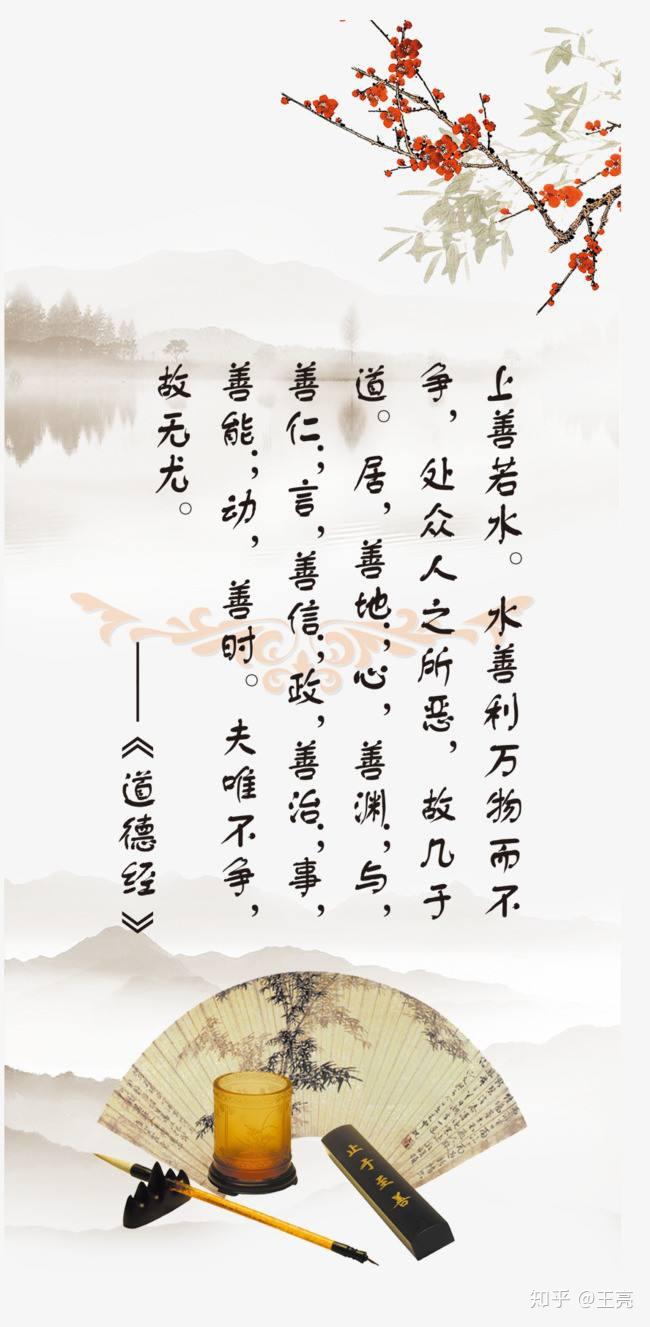 上善若水。水善利万物而不
争，处众人之所恶，故几于
道。居，善地；心，善渊；与，
善仁；言，善信；政，善治；事，
善能；动，善时。夫唯不争，
故无尤。
——《道德经》
止于至善
知乎 @王亮